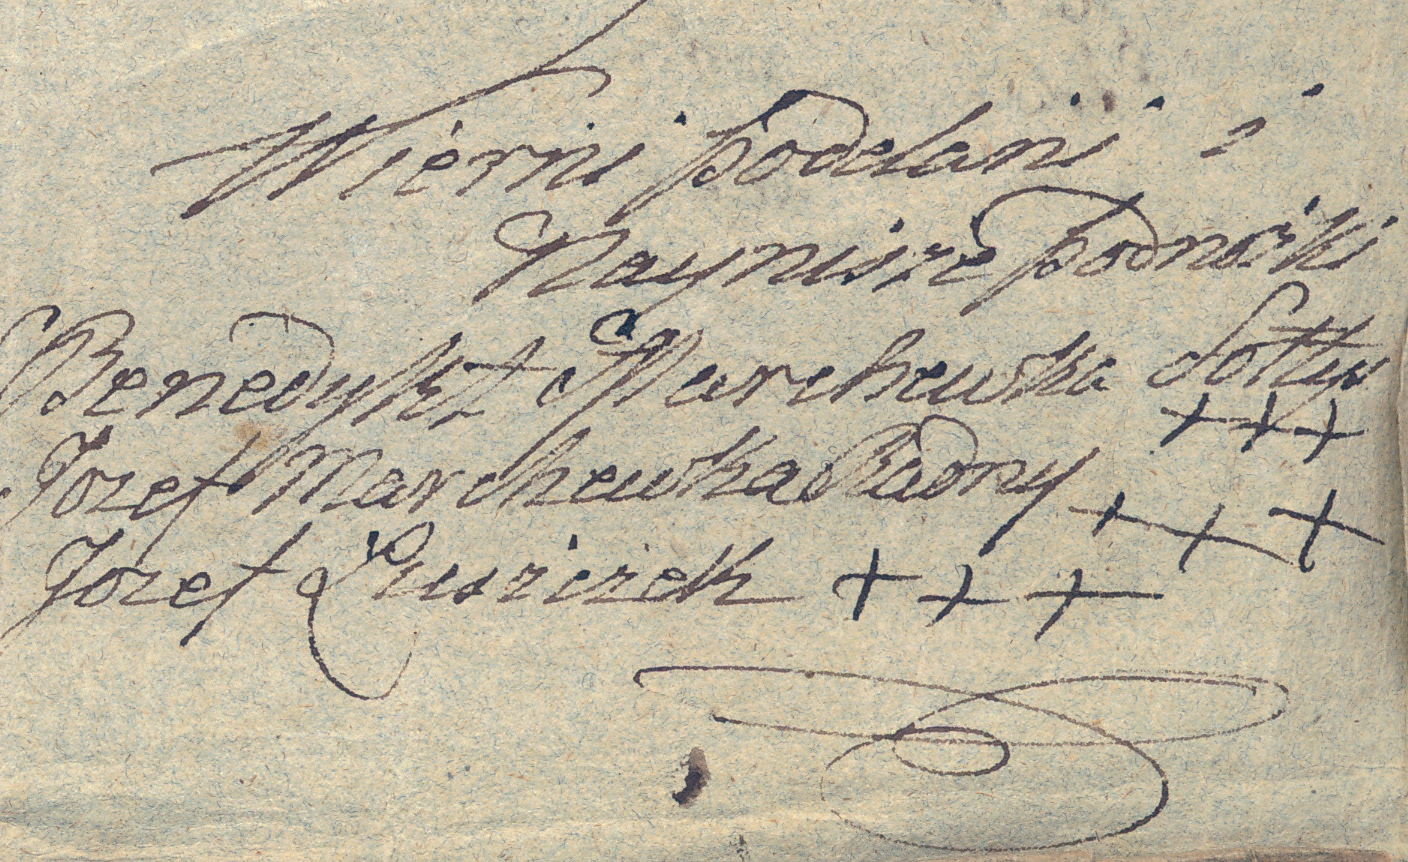 Wierni podelani i
Naynisze podnoiki
Benedykt Marchewka Soltys +++
Jozef Marchewka Radny +++
Jozef Luszizek +++